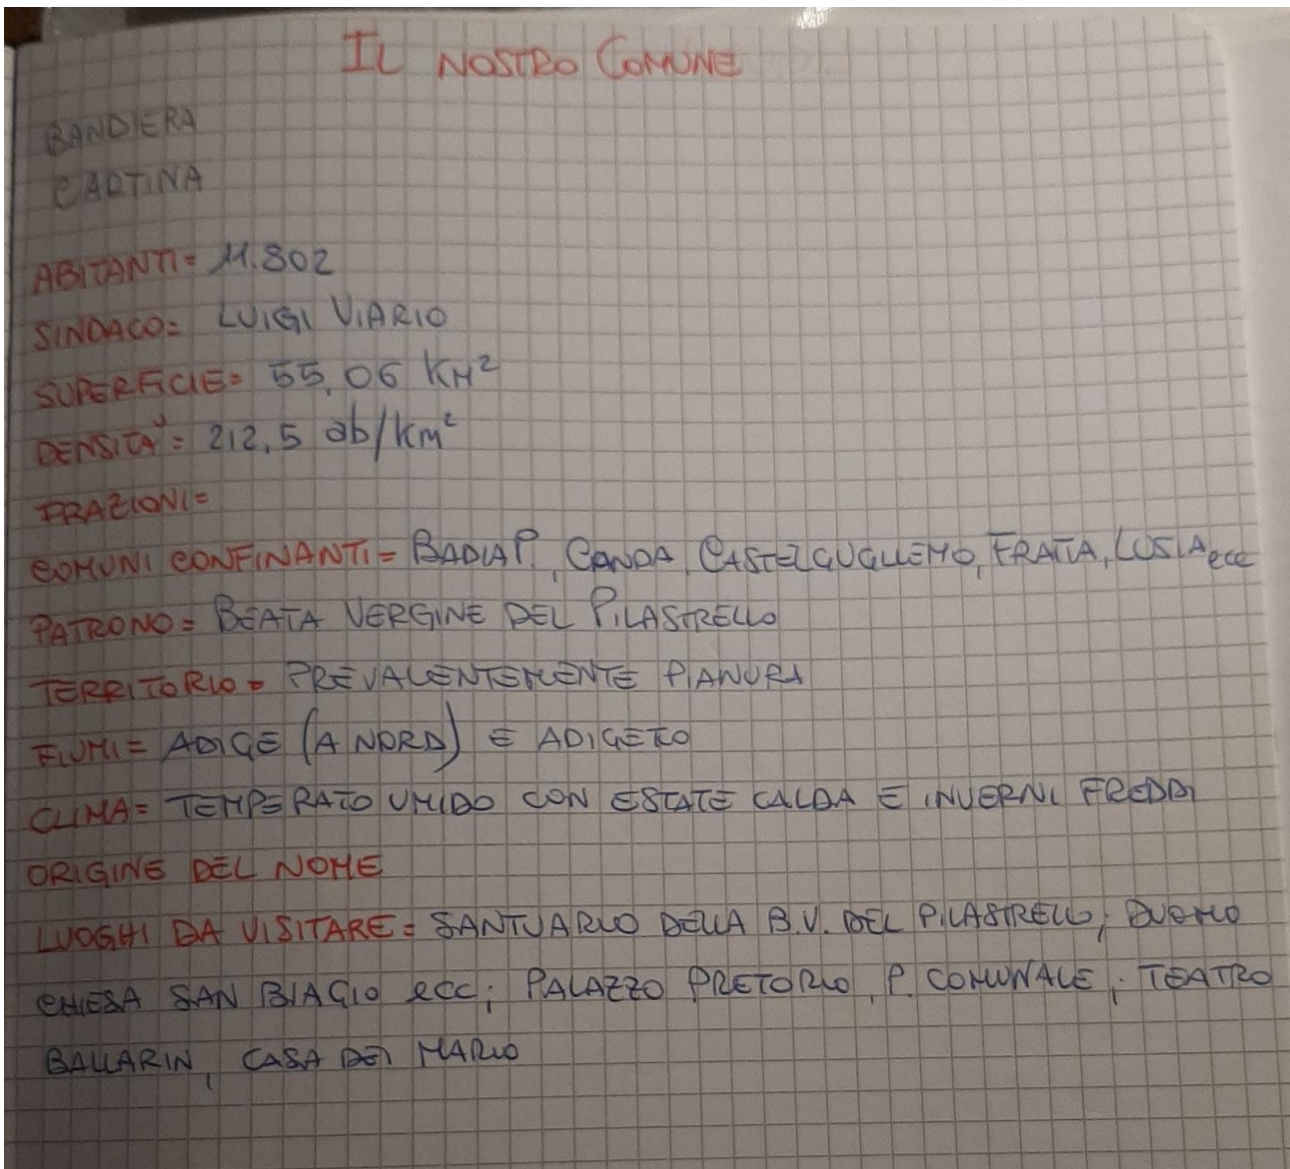 IL NOSTRO COMUNE
BANDIERA
CARTINA
ABITANTI= 11.802
SINDACO= LUIGI VIARIO
SUPERFICIE= 55,06 KM²
DENSITA'= 212,5 ab/km²
FRAZIONI=
COMUNI CONFINANTI= BADIA P., CANDA, CASTELGUGLIEMO, FRATTA, LUSIA ecc
PATRONO= BEATA VERGINE DEL PILASTRELLO
TERRITORIO= PREVALENTEMENTE PIANURA
FIUMI= ADIGE (A NORD) E ADIGETTO
CLIMA= TEMPERATO UMIDO CON ESTATE CALDA E INVERNI FREDDI
ORIGINE DEL NOME
LUOGHI DA VISITARE= SANTUARIO DELLA B.V. DEL PILASTRELLO, DUOMO
CHIESA SAN BIAGIO ecc; PALAZZO PRETORIO, P. COMUNALE; TEATRO
BALLARIN, CASA DEI MARIO